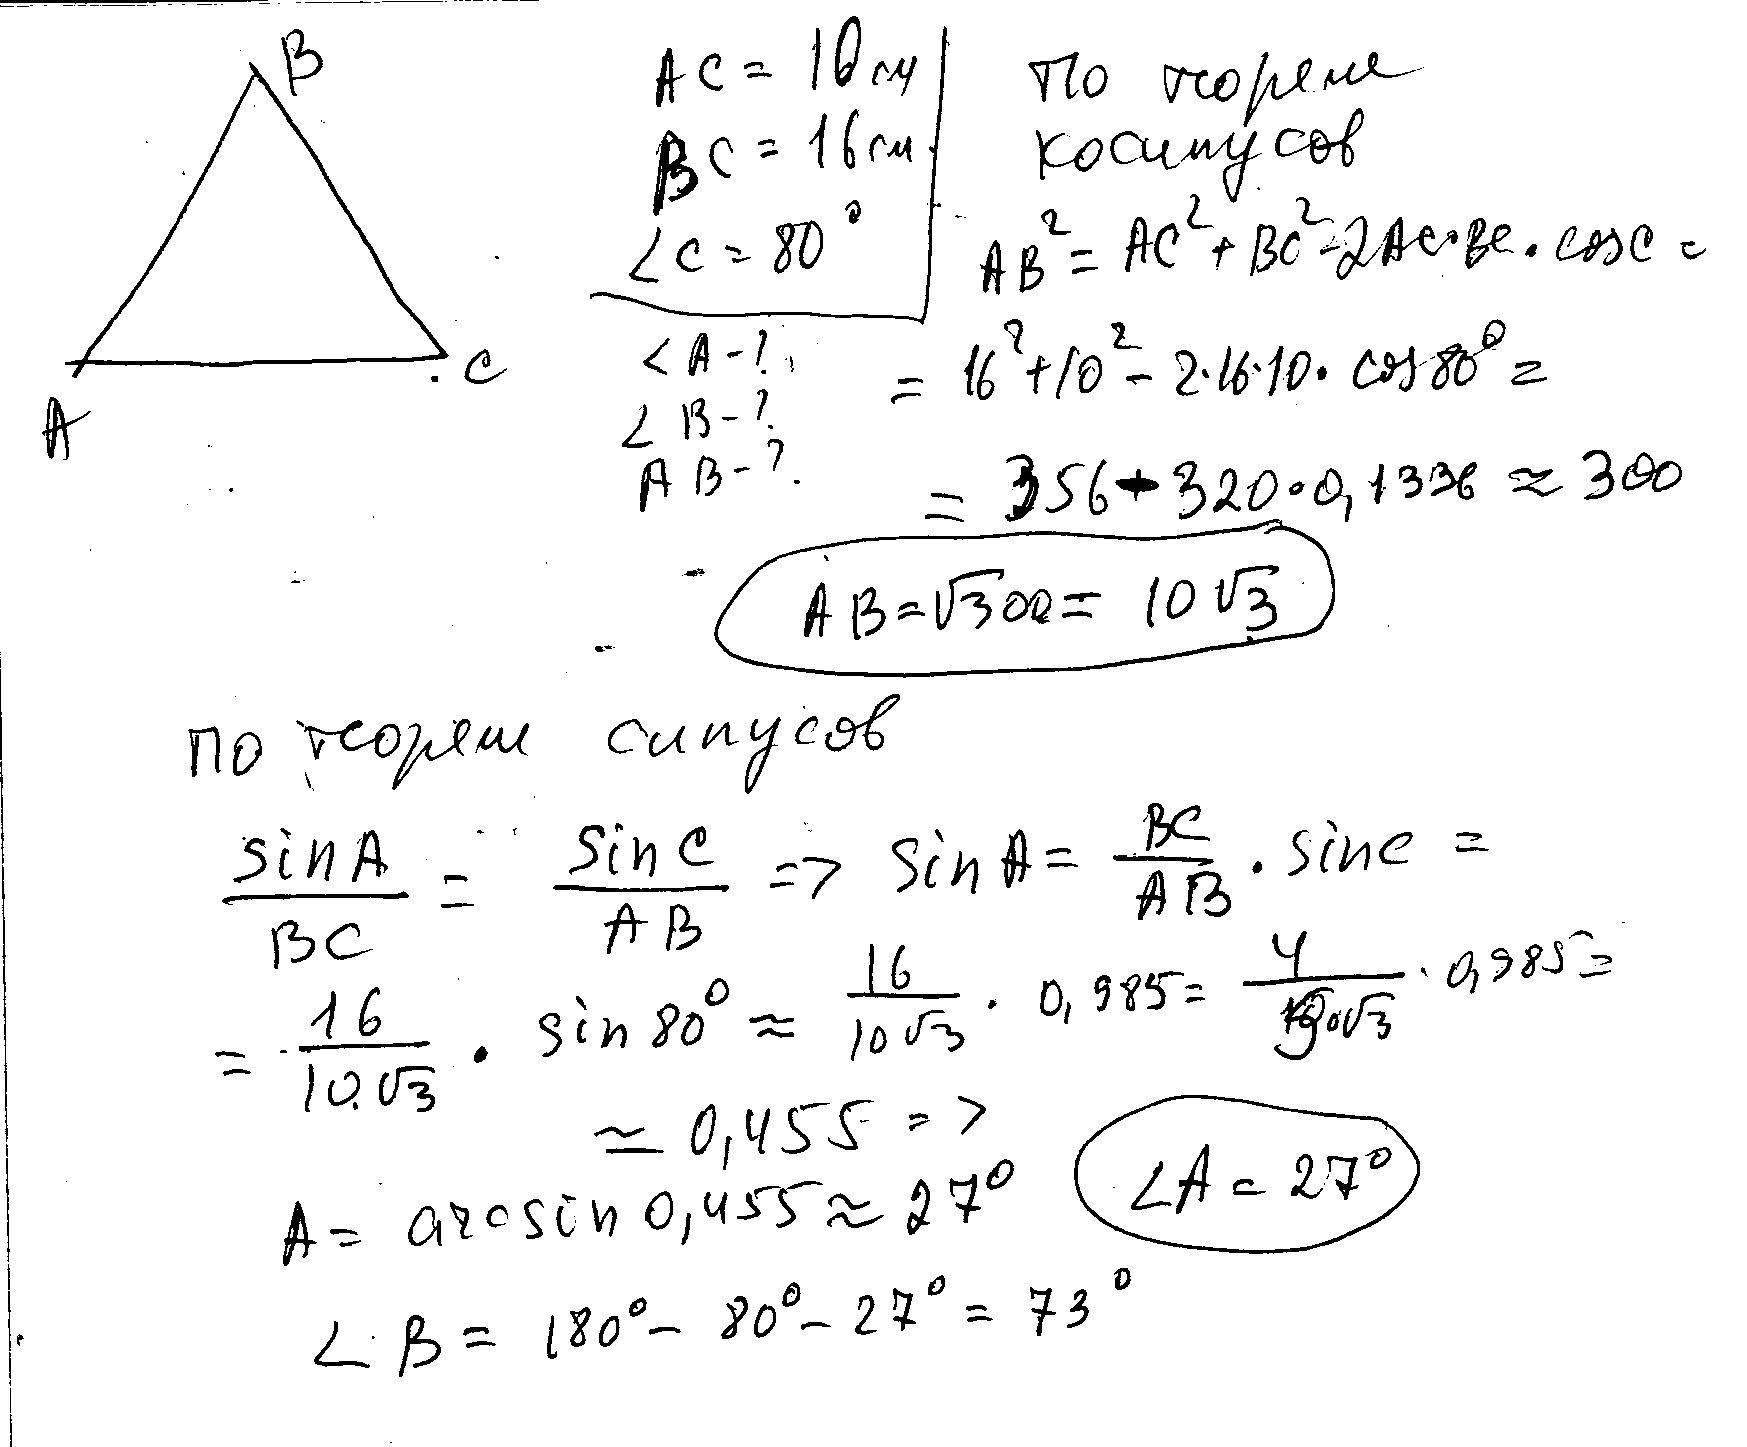 B
A
C
AC = 10 см
BC = 16 см.
∠C = 80°
∠A - ?
∠B - ?
AB - ?
По теореме
косинусов
AB² = AC² + BC² - 2AC·BC · cos C =
= 16² + 10² - 2·16·10 · cos 80° =
= 356 - 320 · 0,1736 ≈ 300
AB = √300 = 10√3
По теореме синусов
sin A / BC = sin C / AB => sin A = BC / AB · sin C =
= 16 / 10·√3 · sin 80° ≈ 16 / 10√3 · 0,985 = 4 / √3 · 0,985 =
≈ 0,455 =>
A = arcsin 0,455 ≈ 27°
∠A = 27°
∠B = 180° - 80° - 27° = 73°